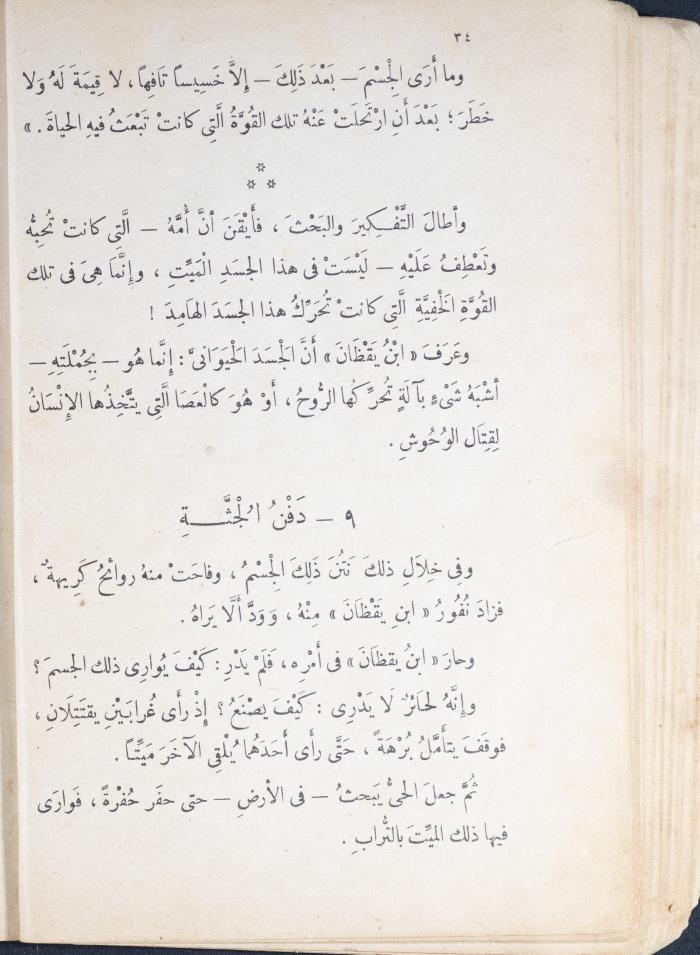 ٣٤
وما أَرَى الْجِسْمَ – بَعْدَ ذَلِكَ – إِلاَّ خَسِيساً تافِهاً، لا قِيمَةَ لَهُ وَلا
خَطَرَ ؛ بَعْدَ أَنِ ارْتَحَلَتْ عَنْهُ تلك القُوَّةُ الَّتِي كانتْ تَبْعَثُ فيهِ الحياةَ . »
* * *
وأَطالَ التَّفْـكِيرَ والبَحْثَ ، فأَيْقَنَ أنَّ أُمَّهُ – الَّتِي كانتْ تُحِبُّهُ
وتَعْطِفُ عَلَيْهِ – لَيْسَتْ فى هذا الجسَدِ الْمَيِّتِ ، وإِنَّمَا هِىَ فى تلك
القُوَّةِ الْخَفِيَّةِ الَّتِي كانتْ تُحَرِّكُ هذا الجسَدَ الهَامِدَ !
وعَرَفَ « ابْنُ يَقْظَانَ » أَنَّ الْجَسَدَ الْحَيَوَانىَّ : إِنَّما هُو – بِجُمْلَتِهِ –
أَشْبَهُ شَىْءٍ بآلَةٍ تُحرِّكُها الرُّوحُ ، أَوْ هُوَ كالْعَصَا الَّتِي يتَّخِذُها الإِنْسَانُ
لِقِتَال الوُحُوشِ .
٩ – دَفْنُ الْجُثَّـــةِ
وفِى خِلاَلِ ذلكَ نَتُنَ ذَلِكَ الْجِسْمُ ، وفاحَتْ منهُ روائحُ كَرِيهةٌ ،
فزادَ نُفُورُ « ابنِ يَقْظَانَ » مِنْهُ ، وَوَدَّ أَلَّا يَراهُ .
وحارَ « ابنُ يقظانَ » فى أَمْرِه ، فَلَمْ يَدْرِ : كَيْفَ يُوارِى ذلك الجسمَ ؟
وإِنَّهُ لحائرٌ لَا يَدْرِى : كَيْفَ يصْنَعُ ؟ إِذْ رأَى غُرابَيْنِ يقتَتِلَانِ ،
فوقَفَ يتأَمَّلُ بُرْهَةً ، حَتَّى رأى أَحَدَهُما يُلْقِى الآخَرَ مَيِّتاً .
ثُمَّ جعلَ الحىُّ يَبحثُ – فى الأرضِ – حتى حفَر حُفْرةً ، فَوارَى
فيها ذلك الميِّتَ بالتُّرابِ .